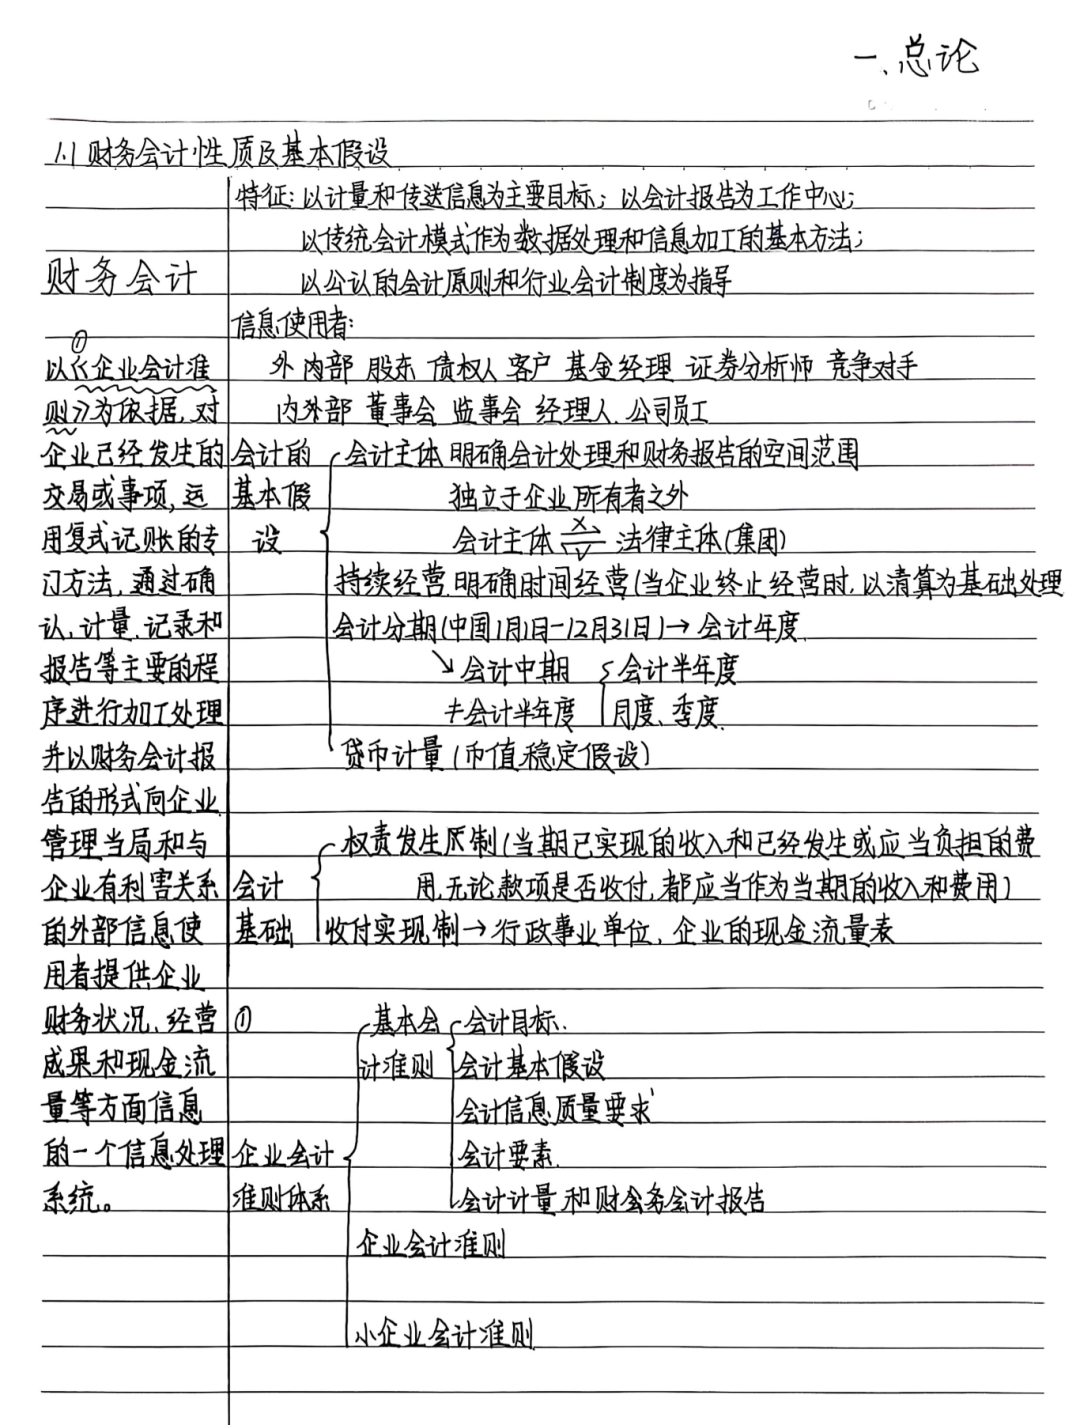 一、总论
1.1 财务会计性质及基本假设
财务会计
以《企业会计准
则》为依据,对
企业已经发生的
交易或事项,运
用复式记账的专
门方法,通过确
认,计量,记录和
报告等主要的程
序进行加工处理
并以财务会计报
告的形式向企业
管理当局和与
企业有利害关系
的外部信息使
用者提供企业
财务状况、经营
成果和现金流
量等方面信息
的一个信息处理
系统。
特征:以计量和传送信息为主要目标;以会计报告为工作中心;
以传统会计模式作为数据处理和信息加工的基本方法;
以公认的会计原则和行业会计制度为指导
信息使用者:
外内部 股东 债权人 客户 基金经理 证券分析师 竞争对手
内外部 董事会 监事会 经理人 公司员工
会计的
基本假
设
会计主体 明确会计处理和财务报告的空间范围
独立于企业所有者之外
会计主体 ×/√ 法律主体(集团)
持续经营 明确时间经营(当企业终止经营时,以清算为基础处理
会计分期(中国1月1日-12月31日)→会计年度
↘会计中期 会计半年度
≠会计半年度 月度、季度
货币计量(币值稳定假设)
会计
基础
权责发生原制(当期已实现的收入和已经发生或应当负担的费
用,无论款项是否收付,都应当作为当期的收入和费用)
收付实现制→行政事业单位,企业的现金流量表
①
企业会计
准则体系
基本会
计准则
会计目标
会计基本假设
会计信息质量要求
会计要素
会计计量和财会务会计报告
企业会计准则
小企业会计准则